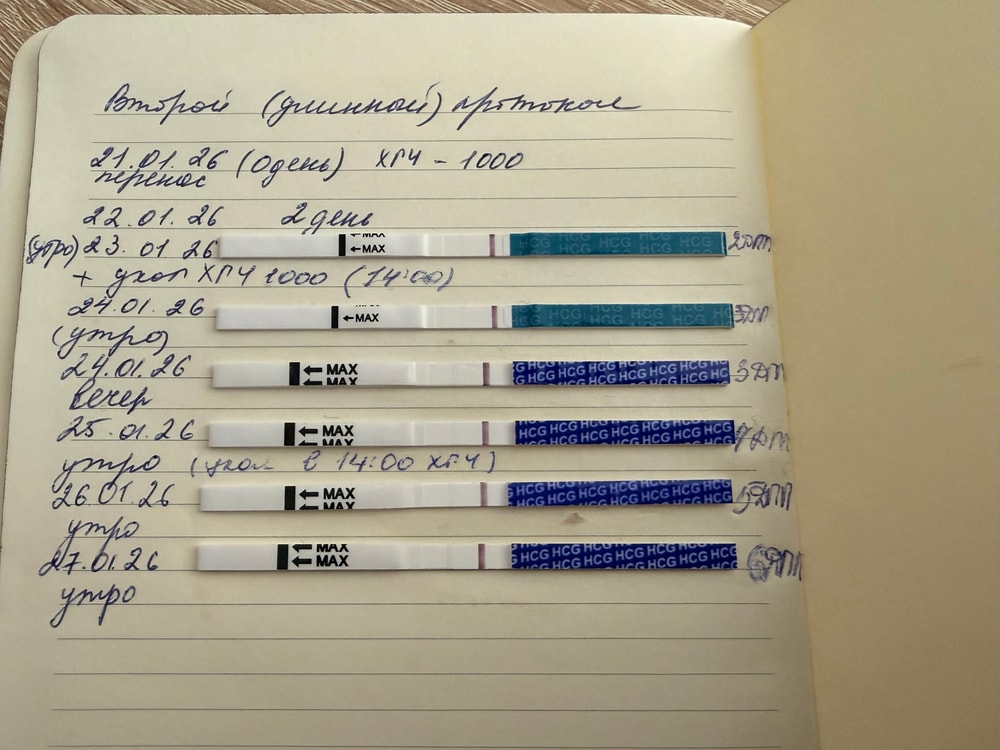 Второй (длинный) протокол
21.01.26 (0день) ХГЧ - 1000
перенос
22.01.26 2 день
(утро) 23.01.26 ←MAX ←MAX HCG HCG HCG HCG 2дпп
+ укол ХГЧ 1000 (14:00)
24.01.26 ←MAX HCG HCG HCG HCG 3дпп
(утро)
24.01.26 ← MAX ← MAX HCG HCG HCG HCG HCG HCG 3дпп
вечер
25.01.26 ← MAX ← MAX HCG HCG HCG HCG HCG HCG 4дпп
утро (укол в 14:00 ХГЧ)
26.01.26 ← MAX ← MAX HCG HCG HCG HCG HCG HCG 5дпп
утро
27.01.26 ← MAX ← MAX HCG HCG HCG HCG HCG HCG 6дпп
утро